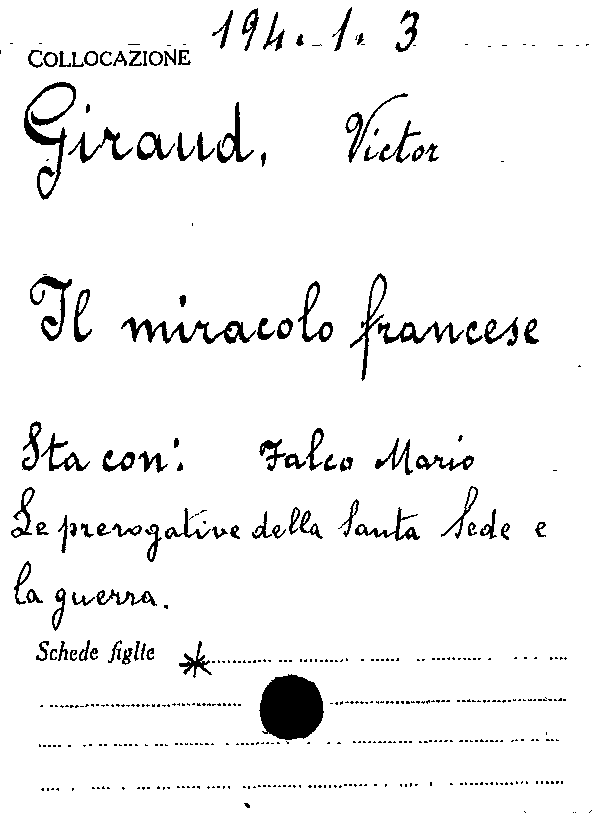 COLLOCAZIONE 194.1.3
Giraud, Victor
Il miracolo francese
Sta con: Falco Mario
Le prerogative della Santa Sede e
la guerra.
Schede figlie *